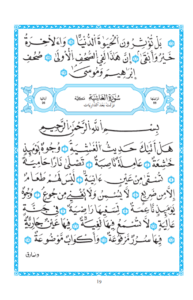 بَلْ تُؤْثِرُونَ الْحَيَوٰةَ الدُّنْيَا وَالْاٰخِرَةُ
خَيْرٌ وَأَبْقَىٰ إِنَّ هٰذَا لَفِي الصُّحُفِ الْأُولَىٰ صُحُفِ
إِبْرٰهِيمَ وَمُوسَىٰ
سُورَةُ الْغَاشِيَةِ
بِسْمِ اللّٰهِ الرَّحْمٰنِ الرَّحِيمِ
هَلْ أَتٰىكَ حَدِيثُ الْغَاشِيَةِ وُجُوهٌ يَوْمَئِذٍ
خَاشِعَةٌ عَامِلَةٌ نَاصِبَةٌ تَصْلَىٰ نَارًا حَامِيَةً
تُسْقَىٰ مِنْ عَيْنٍ اٰنِيَةٍ لَيْسَ لَهُمْ طَعَامٌ
إِلَّا مِنْ ضَرِيعٍ لَا يُسْمِنُ وَلَا يُغْنِي مِنْ جُوعٍ وُجُوهٌ
يَوْمَئِذٍ نَاعِمَةٌ لِسَعْيِهَا رَاضِيَةٌ فِي جَنَّةٍ
عَالِيَةٍ لَا تَسْمَعُ فِيهَا لَاغِيَةً فِيهَا عَيْنٌ جَارِيَةٌ
فِيهَا سُرُرٌ مَرْفُوعَةٌ وَأَكْوَابٌ مَوْضُوعَةٌ
ونمارق